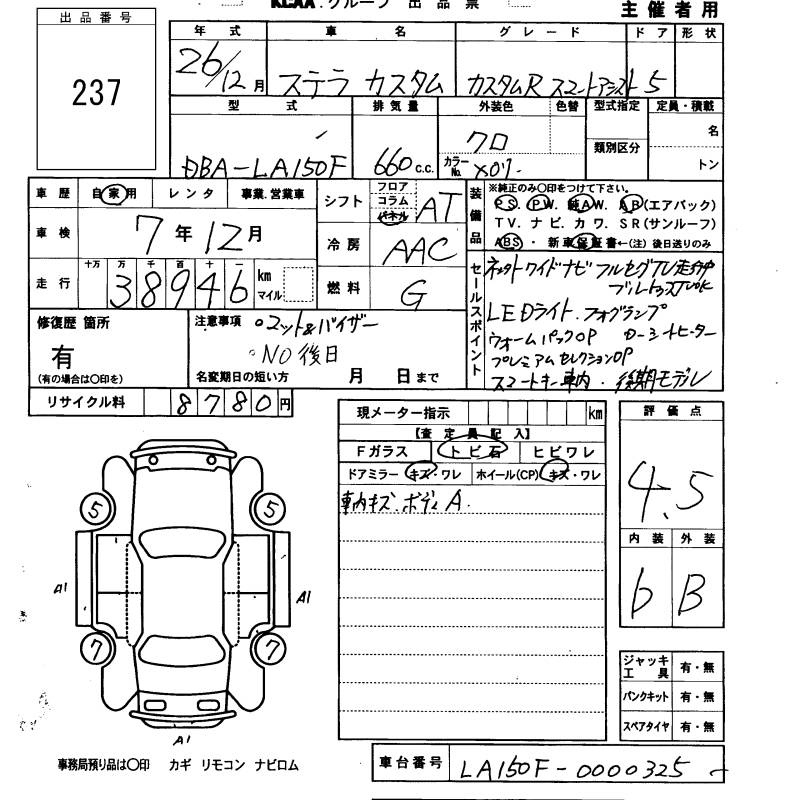 出品番号
237
KCAA.グループ 出品票
主催者用
年式 車名 グレード ドア 形状
26/12月 ステラ カスタム カスタムR スマートアシスト 5
型式 排気量 外装色 色替 型式指定 定員・積載
DBA-LA150F 660c.c. クロ カラーNo. X07 類別区分 名 トン
車歴 自家用 レンタ 事業.営業車
車検 7年12月
走行 十万 万 千 百 十 一 38946 km マイル
シフト フロア コラム パネル AT
冷房 AAC
燃料 G
装備品
※純正のみ〇印をつけて下さい。
PS. PW. 純AW. AB(エアバック)
TV. ナビ. カワ. SR(サンルーフ)
ABS・新車保証書←(注)後日送りのみ
セールスポイント
ネットワイドナビ フルセグTV走行中
ブルートゥスTVOK
LEDライト. フォグランプ
ウォームパックOP シートヒーター
プレミアムセレクションOP
スマートキー車内・後期モデル
修復歴 箇所
有
(有の場合は〇印を)
注意事項 ○マット&バイザー
○NO後日
名変期日の短い方 月 日まで
リサイクル料 8780円
現メーター指示 km
【査定員記入】
Fガラス トビ石 ヒビワレ
ドアミラー キズ・ワレ ホイール(CP) キズ・ワレ
車内キズ.ボディA.
評価点
4.5
内装 外装
b B
5 5
A1 A1
7 7
A1
ジャッキ工具 有・無
パンクキット 有・無
スペアタイヤ 有・無
事務局預り品は〇印 カギ リモコン ナビロム
車台番号 LA150F-0000325